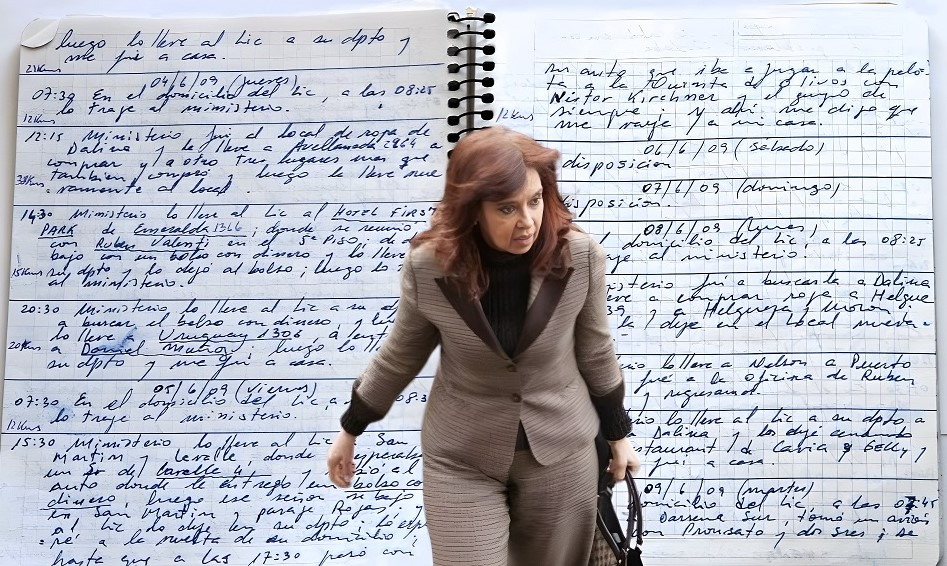 luego lo lleve al Lic a su dpto y
me fui a casa.
21Kms
04/6/09 (jueves)
07:30 En el domicilio del Lic, a las 08:25
lo traje al ministerio.
12Kms
12:15 Ministerio fui al local de ropa de
Dalina y la lleve a Avellaneda 2964 a
comprar y a otro tres lugares mas que
tambien compró y luego la lleve nue
38Kms
-vamente al local.
14:30 Ministerio lo lleve al Lic al HOTEL FIRST
PARK de Esmeralda 1366, donde se reunió
con Ruben Valenti en el 5º Piso; de a
bajo con un bolso con dinero y lo lleve
15Kms su dpto y lo dejó al bolso; luego lo
al ministerio.
20:30 Ministerio lo lleve al Lic a su d
a buscar el bolso con dinero, y lu
lo lleve a Uruguay 1306, a ent
20Kms a Daniel Muñoz; luego lo ll
su dpto y me fui a casa.
05/6/09 (viernes)
07:30 En el domicilio del Lic, a 08:3
lo traje al ministerio.
12Kms
15:30 Ministerio lo lleve al Lic San
Martin y Lavalle donde esperaba
un Sr del Lavalle 4
auto donde le entregó un bolso con
dinero, luego ese señor se bajo
en San Martin y paraje Rojas y
al Lic lo deje en su dpto; lo espe
-ré a la vuelta de su domicilio
hasta que a las 17:30 pasó con
su auto que iba a jugar a la pelo
ta a la Quinta de Olivos con
Néstor Kirchner y el grupo de
12Kms siempre y alli me dijo que
me vaya a mi casa.
06/6/09 (sabado)
disposicion
07/6/09 (domingo)
disposicion.
08/6/09 (lunes)
domicilio del Lic, a las 08:25
aje al ministerio.
isterio fui a buscar a Dalina
eve a comprar ropa a Helgue
39 y a Helguera y Moron
la deje en el local nueva-
rio lleve a Nelson a Puerto
fué a la oficina de Ruben
y regresamos.
rio lo lleve al Lic a su dpto a
a Dalina y los dejé cenando
staurant de Cavia y Gelly y
fui a casa.
09/6/09 (martes)
domicilio del Lic, a las 07:45
Darsena Sur, tomó un avión
con Pronsato y dos sres; se